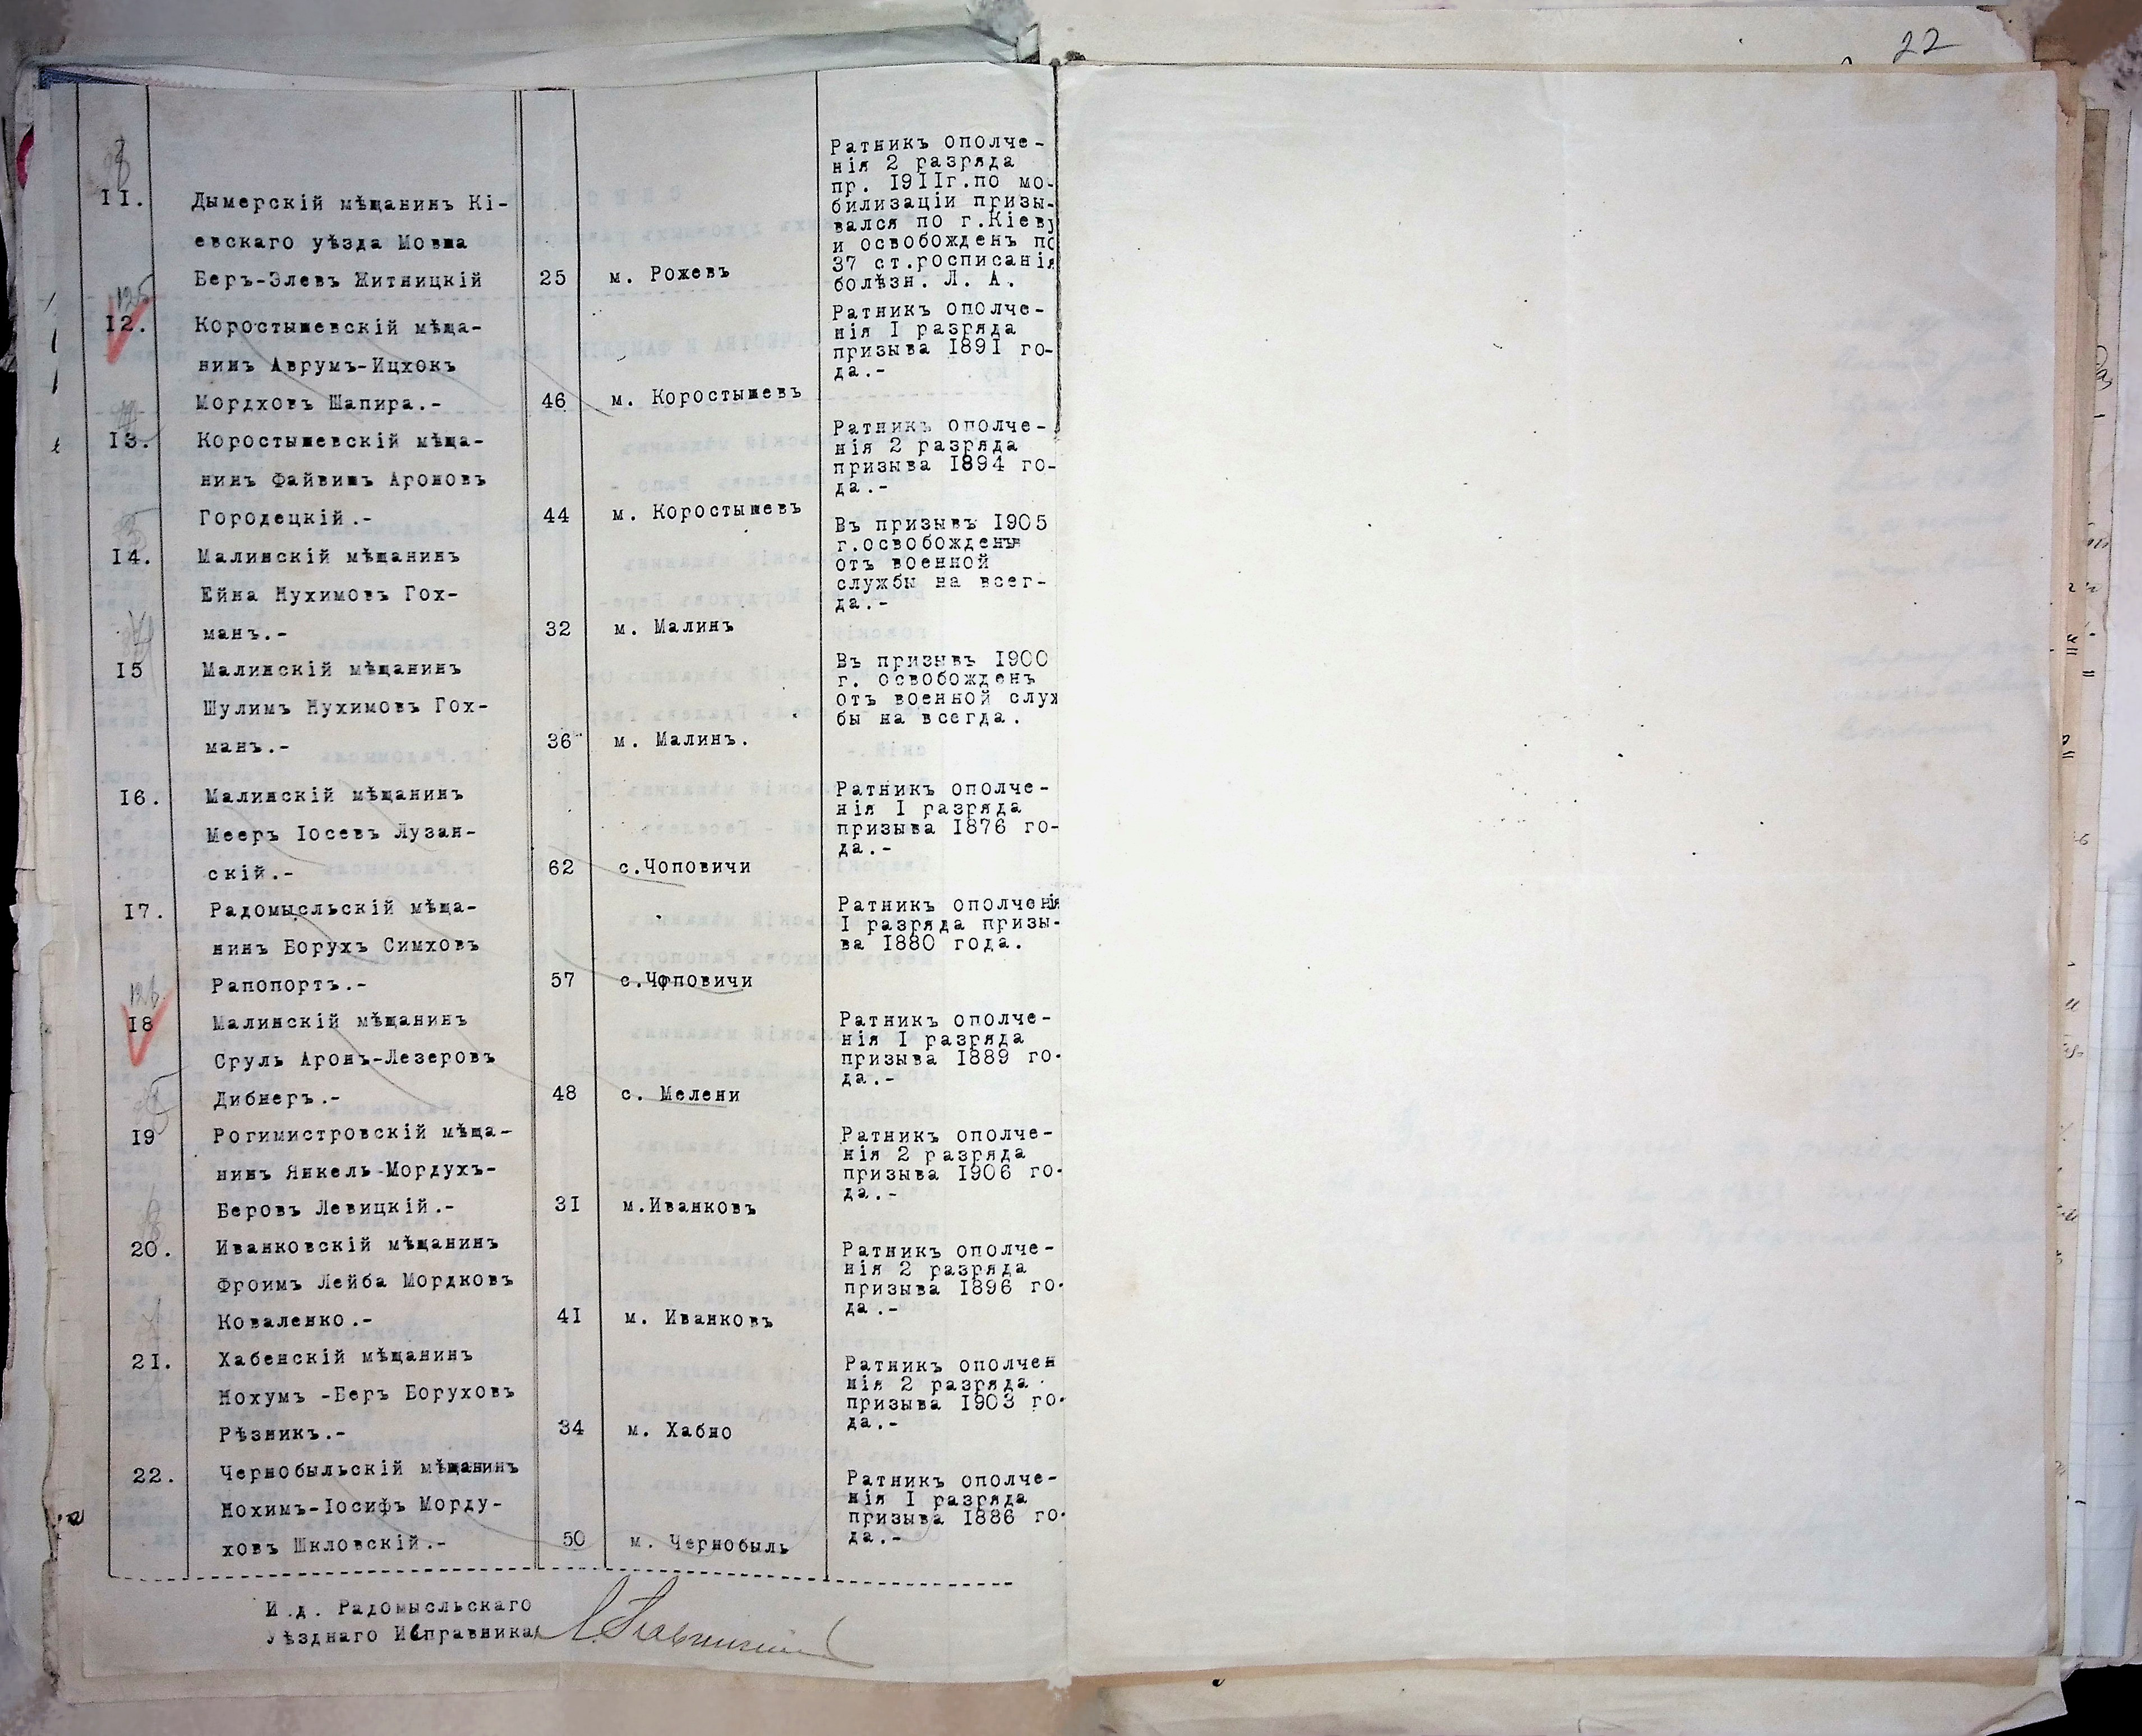 22
11.
Дымерскій мѣщанинъ Кі-
евскаго уѣзда Мовша
Беръ-Элевъ Житницкій
25
м. Рожевъ
Ратникъ ополче-
нія 2 разряда
пр. 1911г.по мо-
билизаціи призы-
вался по г.Кіеву
и освобожденъ по
37 ст.росписанія
болѣзн. Л. А.
125
12.
Коростышевскій мѣща-
нинъ Аврумъ-Ицхокъ
Мордховъ Шапира.-
46
м. Коростышевъ
Ратникъ ополче-
нія I разряда
призыва 1891 го-
да.-
13.
Коростышевскій мѣща-
нинъ Файвишъ Ароновъ
Городецкій.-
44
м. Коростышевъ
Ратникъ ополче-
нія 2 разряда
призыва 1894 го-
да.-
14.
Малинскій мѣщанинъ
Ейна Нухимовъ Гох-
манъ.-
32
м. Малинъ
Въ призывъ 1905
г.освобожденъ
отъ военной
службы на всег-
да.-
15
Малинскій мѣщанинъ
Шулимъ Нухимовъ Гох-
манъ.-
36
м. Малин.
Въ призывъ 1900
г. освобожденъ
отъ военной служ
бы на всегда.
16.
Малинскій мѣщанинъ
Мееръ Іосевъ Лузан-
скій.-
62
с.Чоповичи
Ратникъ ополче-
нія I разряда
призыва 1876 го-
да.-
17.
Радомысльскій мѣща-
нинъ Борухъ Симховъ
Рапопортъ.-
57
с.Чоповичи
Ратникъ ополченія
I разряда призы-
ва 1880 года.
126
18
Малинскій мѣщанинъ
Сруль Аронъ-Лезеровъ
Дибнеръ.-
48
с. Мелени
Ратникъ ополче-
нія I разряда
призыва 1889 го-
да.-
19
Рогимистровскій мѣща-
нинъ Янкель-Мордухъ-
Беровъ Левицкій.-
31
м.Иванковъ
Ратникъ ополче-
нія 2 разряда
призыва 1906 го-
да.-
20.
Иванковскій мѣщанинъ
Фроимъ Лейба Мордковъ
Коваленко.-
41
м. Иванковъ
Ратникъ ополче-
нія 2 разряда
призыва 1896 го-
да.-
21.
Хабенскій мѣщанинъ
Нохумъ -Беръ Боруховъ
Рѣзникъ.-
34
м. Хабно
Ратникъ ополчен
нія 2 разряда
призыва 1903 го-
да.-
22.
Чернобыльскій мѣщанинъ
Нохимъ-Іосифъ Морду-
ховъ Шкловскій.-
50
м. Чернобыль
Ратникъ ополче-
нія I разряда
призыва 1886 го-
да.-
И.д. Радомысльскаго
Уѣзднаго Исправника